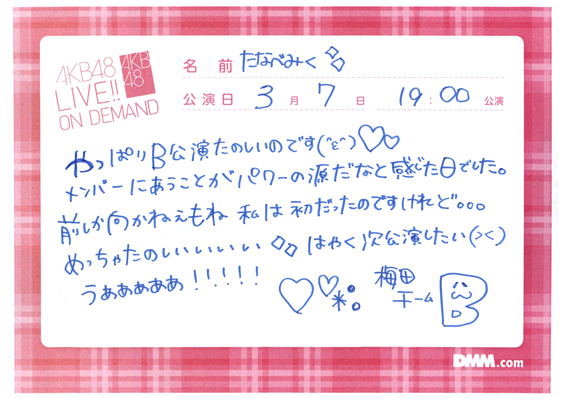 AKB48
LIVE!!
ON DEMAND
AKB
48
名 前 たなべみく
公演日 3月 7日 19:00 公演
やっぱりB公演たのしいのです(^ε^)♡♡
メンバーにあうことがパワーの源だなと感じた日でした。
前しか向かねえもね 私は初だったのですけれど。。。
めっちゃたのしいいいいい はやく次公演したい(><)
うぁぁぁぁぁ!!!!!
梅田
チーム B
DMM.com